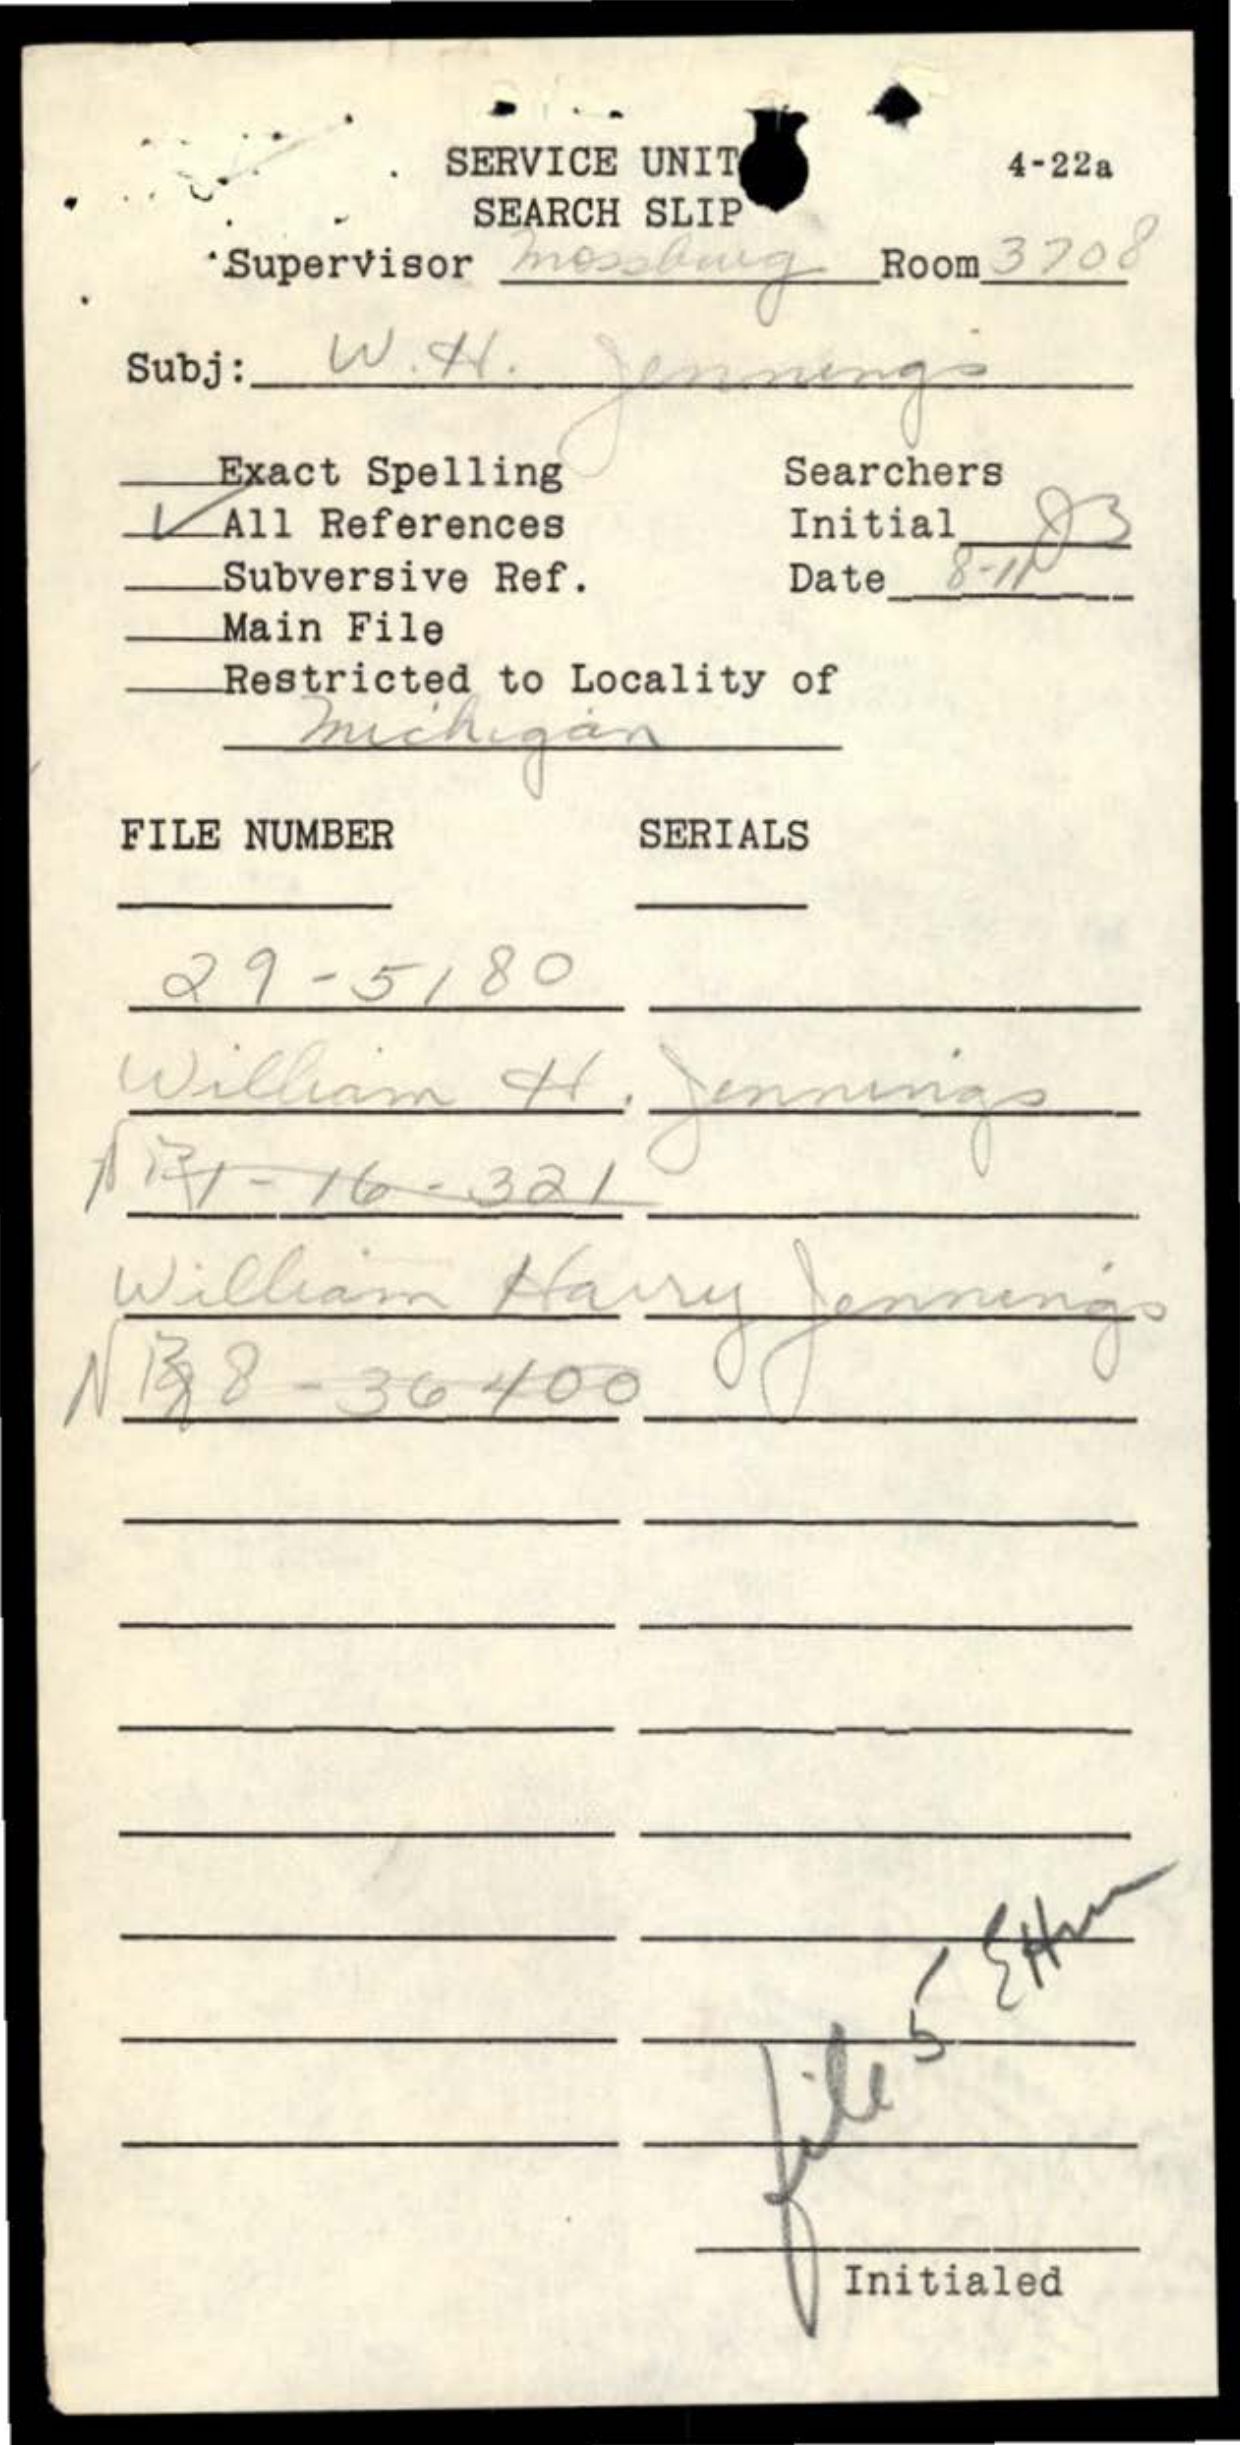 SERVICE UNIT 4-22a
SEARCH SLIP
Supervisor Mossburg Room 3708
Subj: W. H. Jennings
Exact Spelling Searchers
✓ All References Initial JB
Subversive Ref. Date 8-11
Main File
Restricted to Locality of
Michigan
FILE NUMBER SERIALS
29-5180
William H. Jennings
1-16-321
William Harry Jennings
8-36400
file 5
Initialed